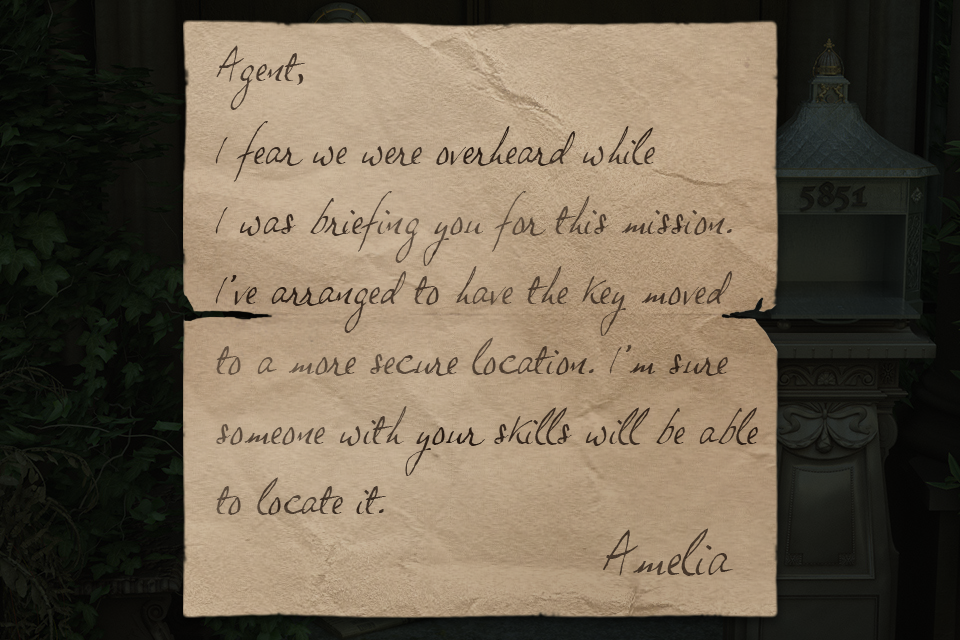 Agent,
I fear we were overheard while
I was briefing you for this mission.
I've arranged to have the key moved
to a more secure location. I'm sure
someone with your skills will be able
to locate it.
Amelia
5851